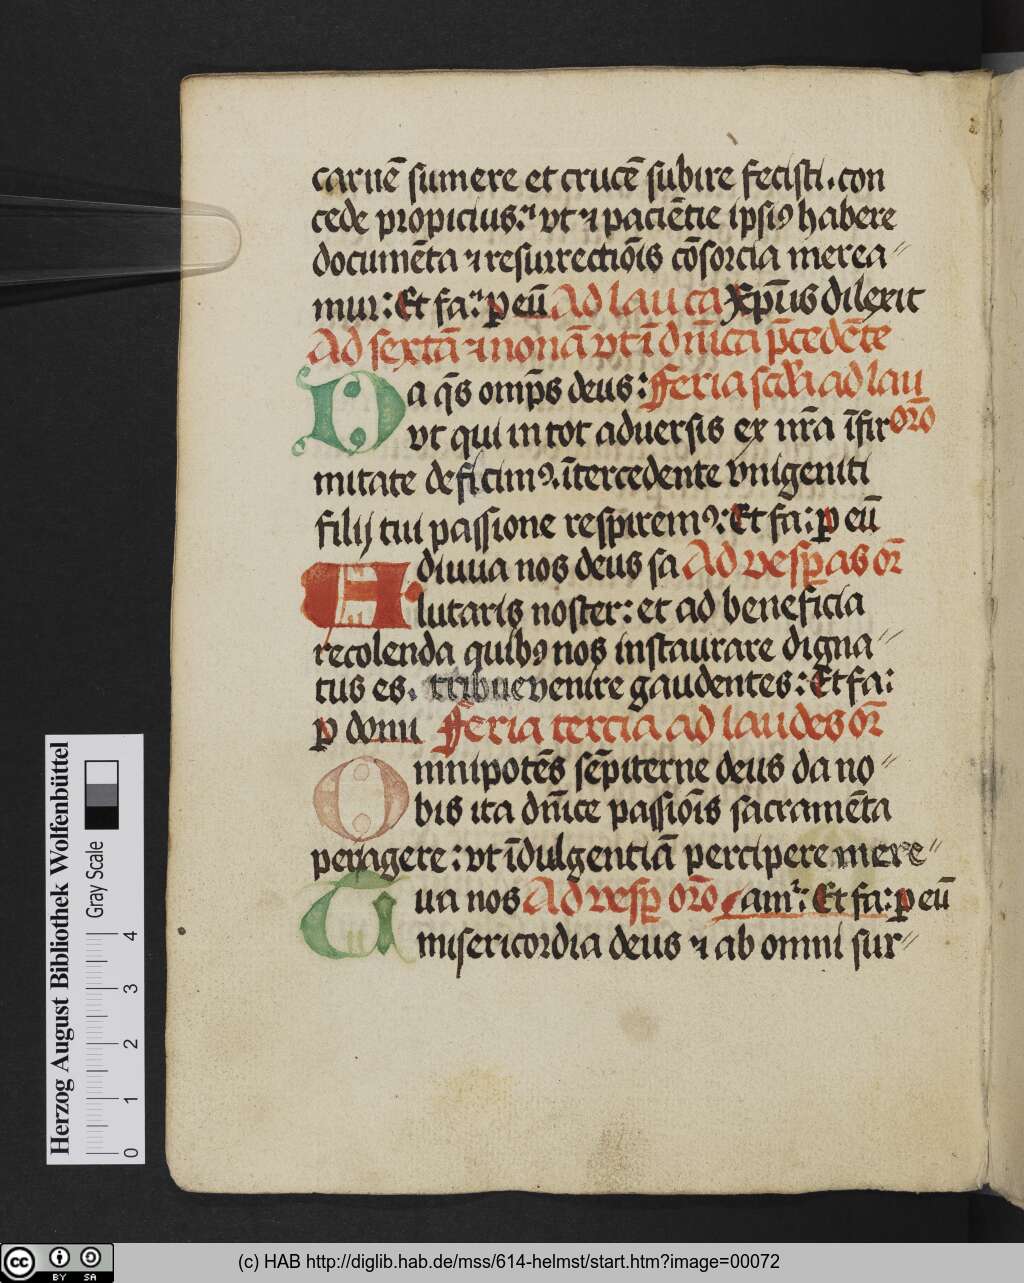 carnē sumere et crucē subire fecisti. con
cede propicius: vt ⁊ paciētie ipsiꝯ habere
documēta ⁊ resurrectiōis cōsorcia merea″
mur: Et fa: ꝑ eū Ad lau ca Xp̄us dilexit
Ad sextā ⁊ nonā vt ī dn̄ica p̄cedēte
Da q̄s omp̄s deus: Feria scd̄a ad lau
vt qui in tot aduersis ex nr̄a īfir orō
mitate deficimꝯ. ītercedente vnigeniti
filij tui passione respiremꝯ: Et fa: ꝑ eū
Adiuua nos deus sa Ad vesꝑas or̄
lutaris noster: et ad beneficia
recolenda quibꝯ nos instaurare digna″
tus es. tribue venire gaudentes: Et fa:
ꝑ domi Feria tercia ad laudes or̄
Omnipotēs sēpiterne deus da no″
bis ita dn̄ice passiōis sacramēta
peragere: vt īdulgentiā percipere mere″
Tua nos Ad vesꝑ orō am̄: Et fa: ꝑ eū
misericordia deus ⁊ ab omni sur″
Herzog August Bibliothek Wolfenbüttel
Gray Scale
0 1 2 3 4
cc BY SA
(c) HAB http://diglib.hab.de/mss/614-helmst/start.htm?image=00072